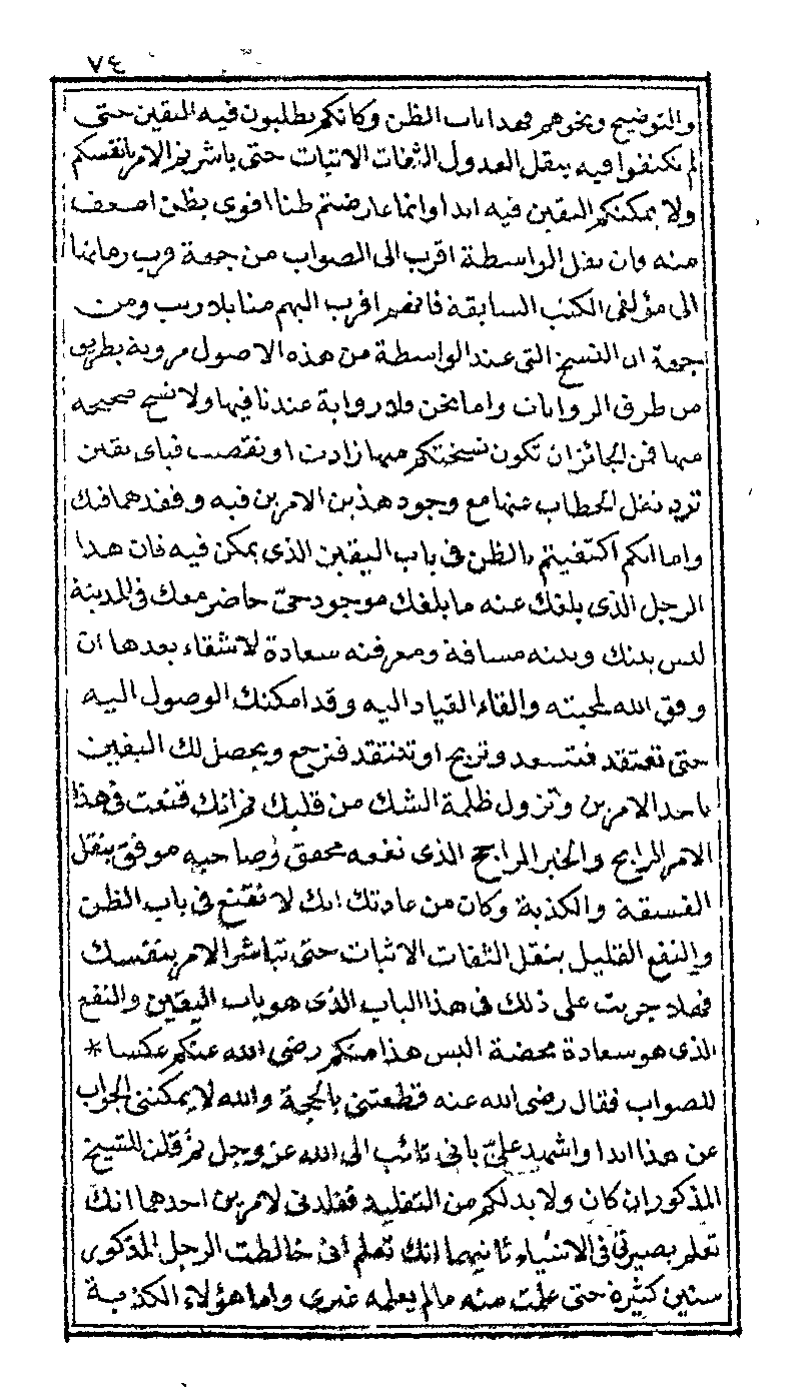 ٧٤
والتوضيح ونحوهم فهذا باب الظن وكانكم تطلبون فيه اليقين حتى
لم تكتفوا فيه بنقل العدول الثقات الاثبات حتى باشرتم الامر بانفسكم
ولا يمكنكم اليقين فيه ابدا وانما عارضتم ظنا اقوى بظن اضعف
منه فان نقل الواسطة اقرب الى الصواب من جهة قرب زمانها
الى مؤلفى الكتب السابقة فانهم اقرب اليهم منا بلا ريب ومن
جهة ان النسخ التى عند الواسطة من هذه الاصول مروية بطريق
من طرق الروايات واما نحن فلا رواية عندنا فيها ولا نسخ صحيحه
منها فمن الجائز ان تكون نسختكم منها زادت او نقصت فباى يقين
ترد نقل الحطاب عنها مع وجود هذين الامرين فيه وفقدهما فيك
واما انكم اكتفيتم بالظن فى باب اليقين الذى يمكن فيه فان هذا
الرجل الذى بلغك عنه ما بلغك موجود حىّ حاضر معك فى المدينة
ليس بينك وبينه مسافة ومعرفته سعادة لا شقاء بعدها ان
وفق الله لمحبته والقاء القياد اليه وقد امكنك الوصول اليه
حتى تعتقد فتسعد وتربح او تنتقد فترجع ويحصل لك اليقين
باحد الامرين وتزول ظلمة الشك من قلبك ثم انك قنعت فى هذا
الامر الرابح والخير الراجح الذى نفعه محقق وصاحبه موفق بنقل
الفسقة والكذبة وكان من عادتك انك لا تقنع فى باب الظن
والنفع القليل بنقل الثقات الاثبات حتى تباشر الامر بنفسك
فهلا جريت على ذلك فى هذا الباب الذى هو باب اليقين والنفع
الذى هو سعادة محضة اليس هذا منكم رضى الله عنكم عكسا *
للصواب فقال رضى الله عنه قطعتنى بالحجة والله لا يمكننى الجواب
عن هذا ابدا واشهد علىّ بانى تائب الى الله عز وجل ثم قلت للشيخ
المذكور ان كان ولا بد لكم من التقليد فقلدنى لامرين احدهما انك
تعلم بصيرتى فى الاشياء ثانيهما انك تعلم أنى خالطت الرجل المذكور
سنين كثيرة حتى علمت منه مالم يعلمه غيرى واما هؤلاء الكذبة